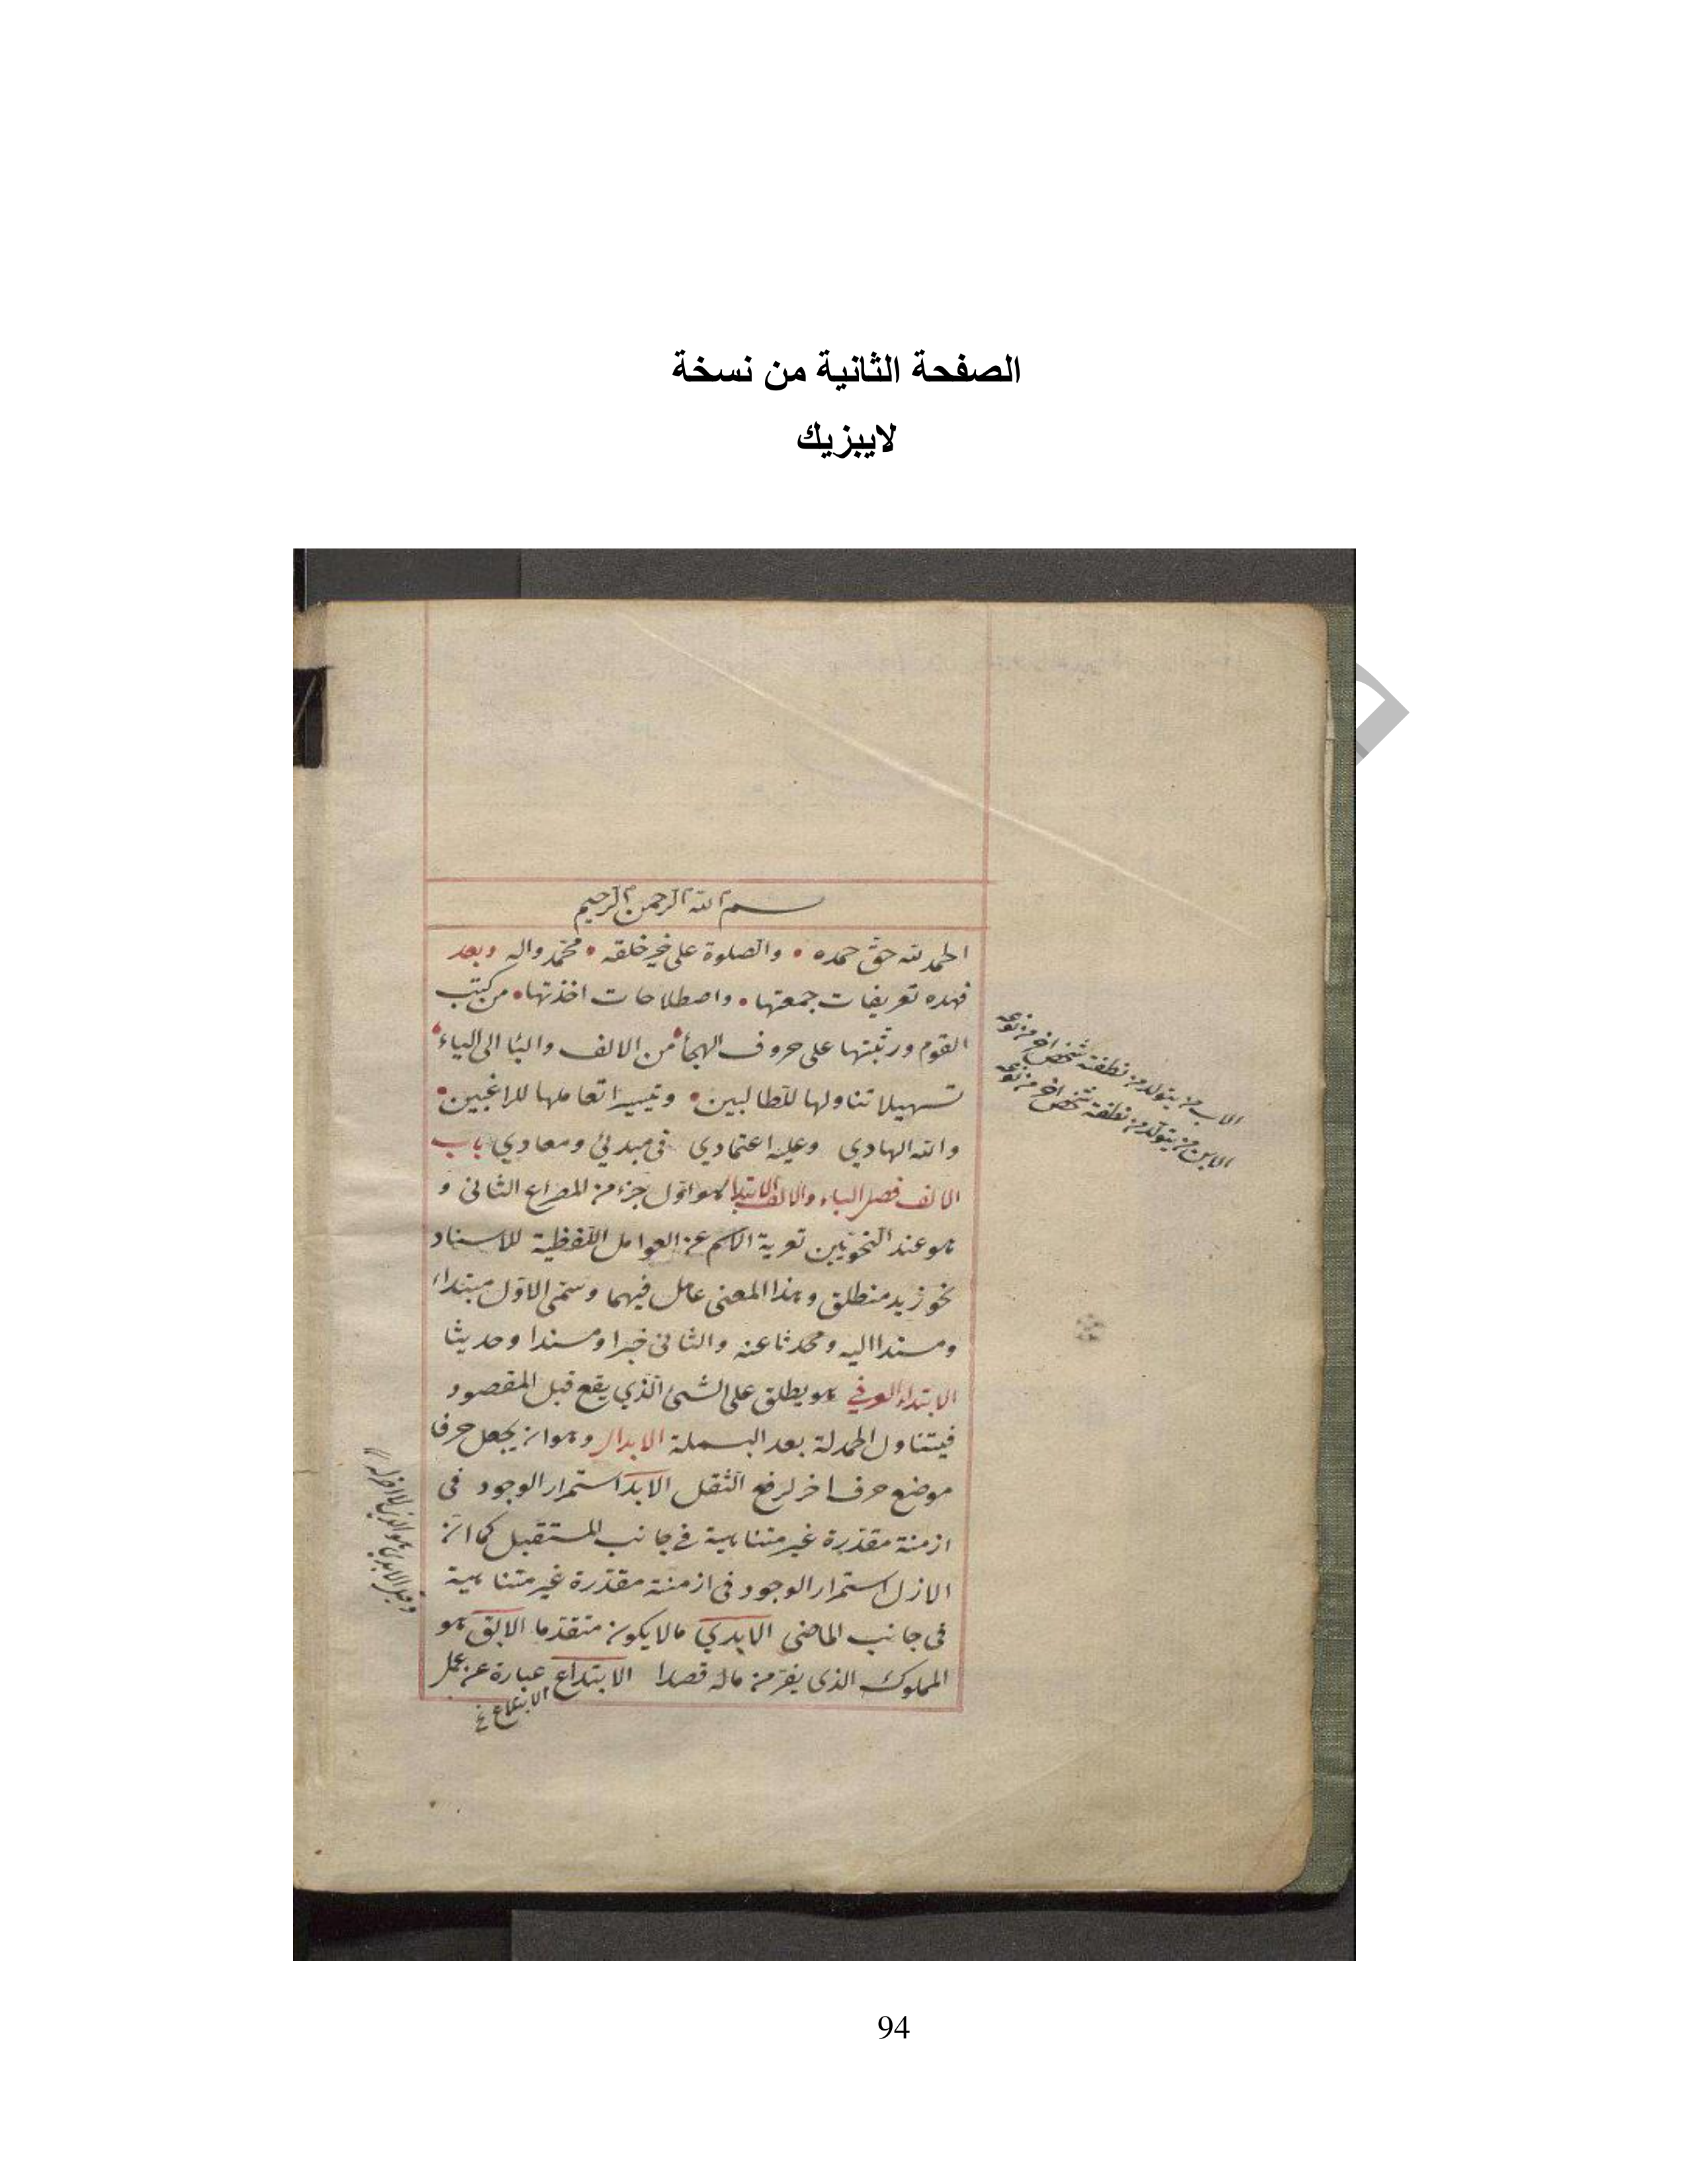 الصفحة الثانية من نسخة
لايبزيك
بسم الله الرحمن الرحيم
الحمد لله حق حمده • والصلوة على خير خلقه • محمد واله وبعد
فهذه تعريفات جمعتها • واصطلاحات اخذتها • من كتب
القوم ورتبتها على حروف الهجأ من الالف والبا الى الياء •
تسهيلا تناولها للطالبين • وتيسيرا تعاملها للراغبين •
والله الهادي وعليه اعتمادي في مبدئي ومعادي باب
الالف فصل الباء والالف الابتدا هو اول جزء من المصراع الثاني و
هو عند النحويين تعرية الاسم عن العوامل اللفظية للاسناد
نحو زيد منطلق وهذا المعنى عامل فيهما وسمى الاول مبتداء
ومسندا اليه ومحدثا عنه والثاني خبرا ومسندا وحديثا
الابتداء العرفي هو يطلق على الشئ الذي يقع قبل المقصود
فيتناول الحمدلة بعد البسملة الابدال وهو ان يجعل حرفا
موضع حرف اخر لرفع الثقل الابد استمرار الوجود في
ازمنة مقدرة غير متناهية في جانب المستقبل كما ان
الازل استمرار الوجود في ازمنة مقدرة غير متناهية
في جانب الماضى الابدي ما لا يكون منقدما الابق هو
المملوك الذى يفر من ماله قصدا الابتداع عبارة عن عمل
الابتلاع خ
الاب من يتولد من نطفته شخص اخر من نوعه
الابن من يتولد من نطفة شخص اخر من نوعه
94